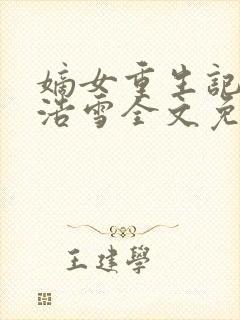 嫡女重生記
浩雪全文免
王建學